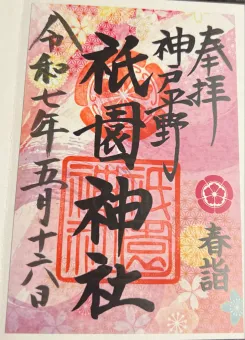 奉拝
春詣
神戸平野
祇園神社
令和七年五月十六日